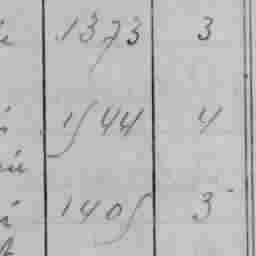 1373 3
1544 4
1405 3